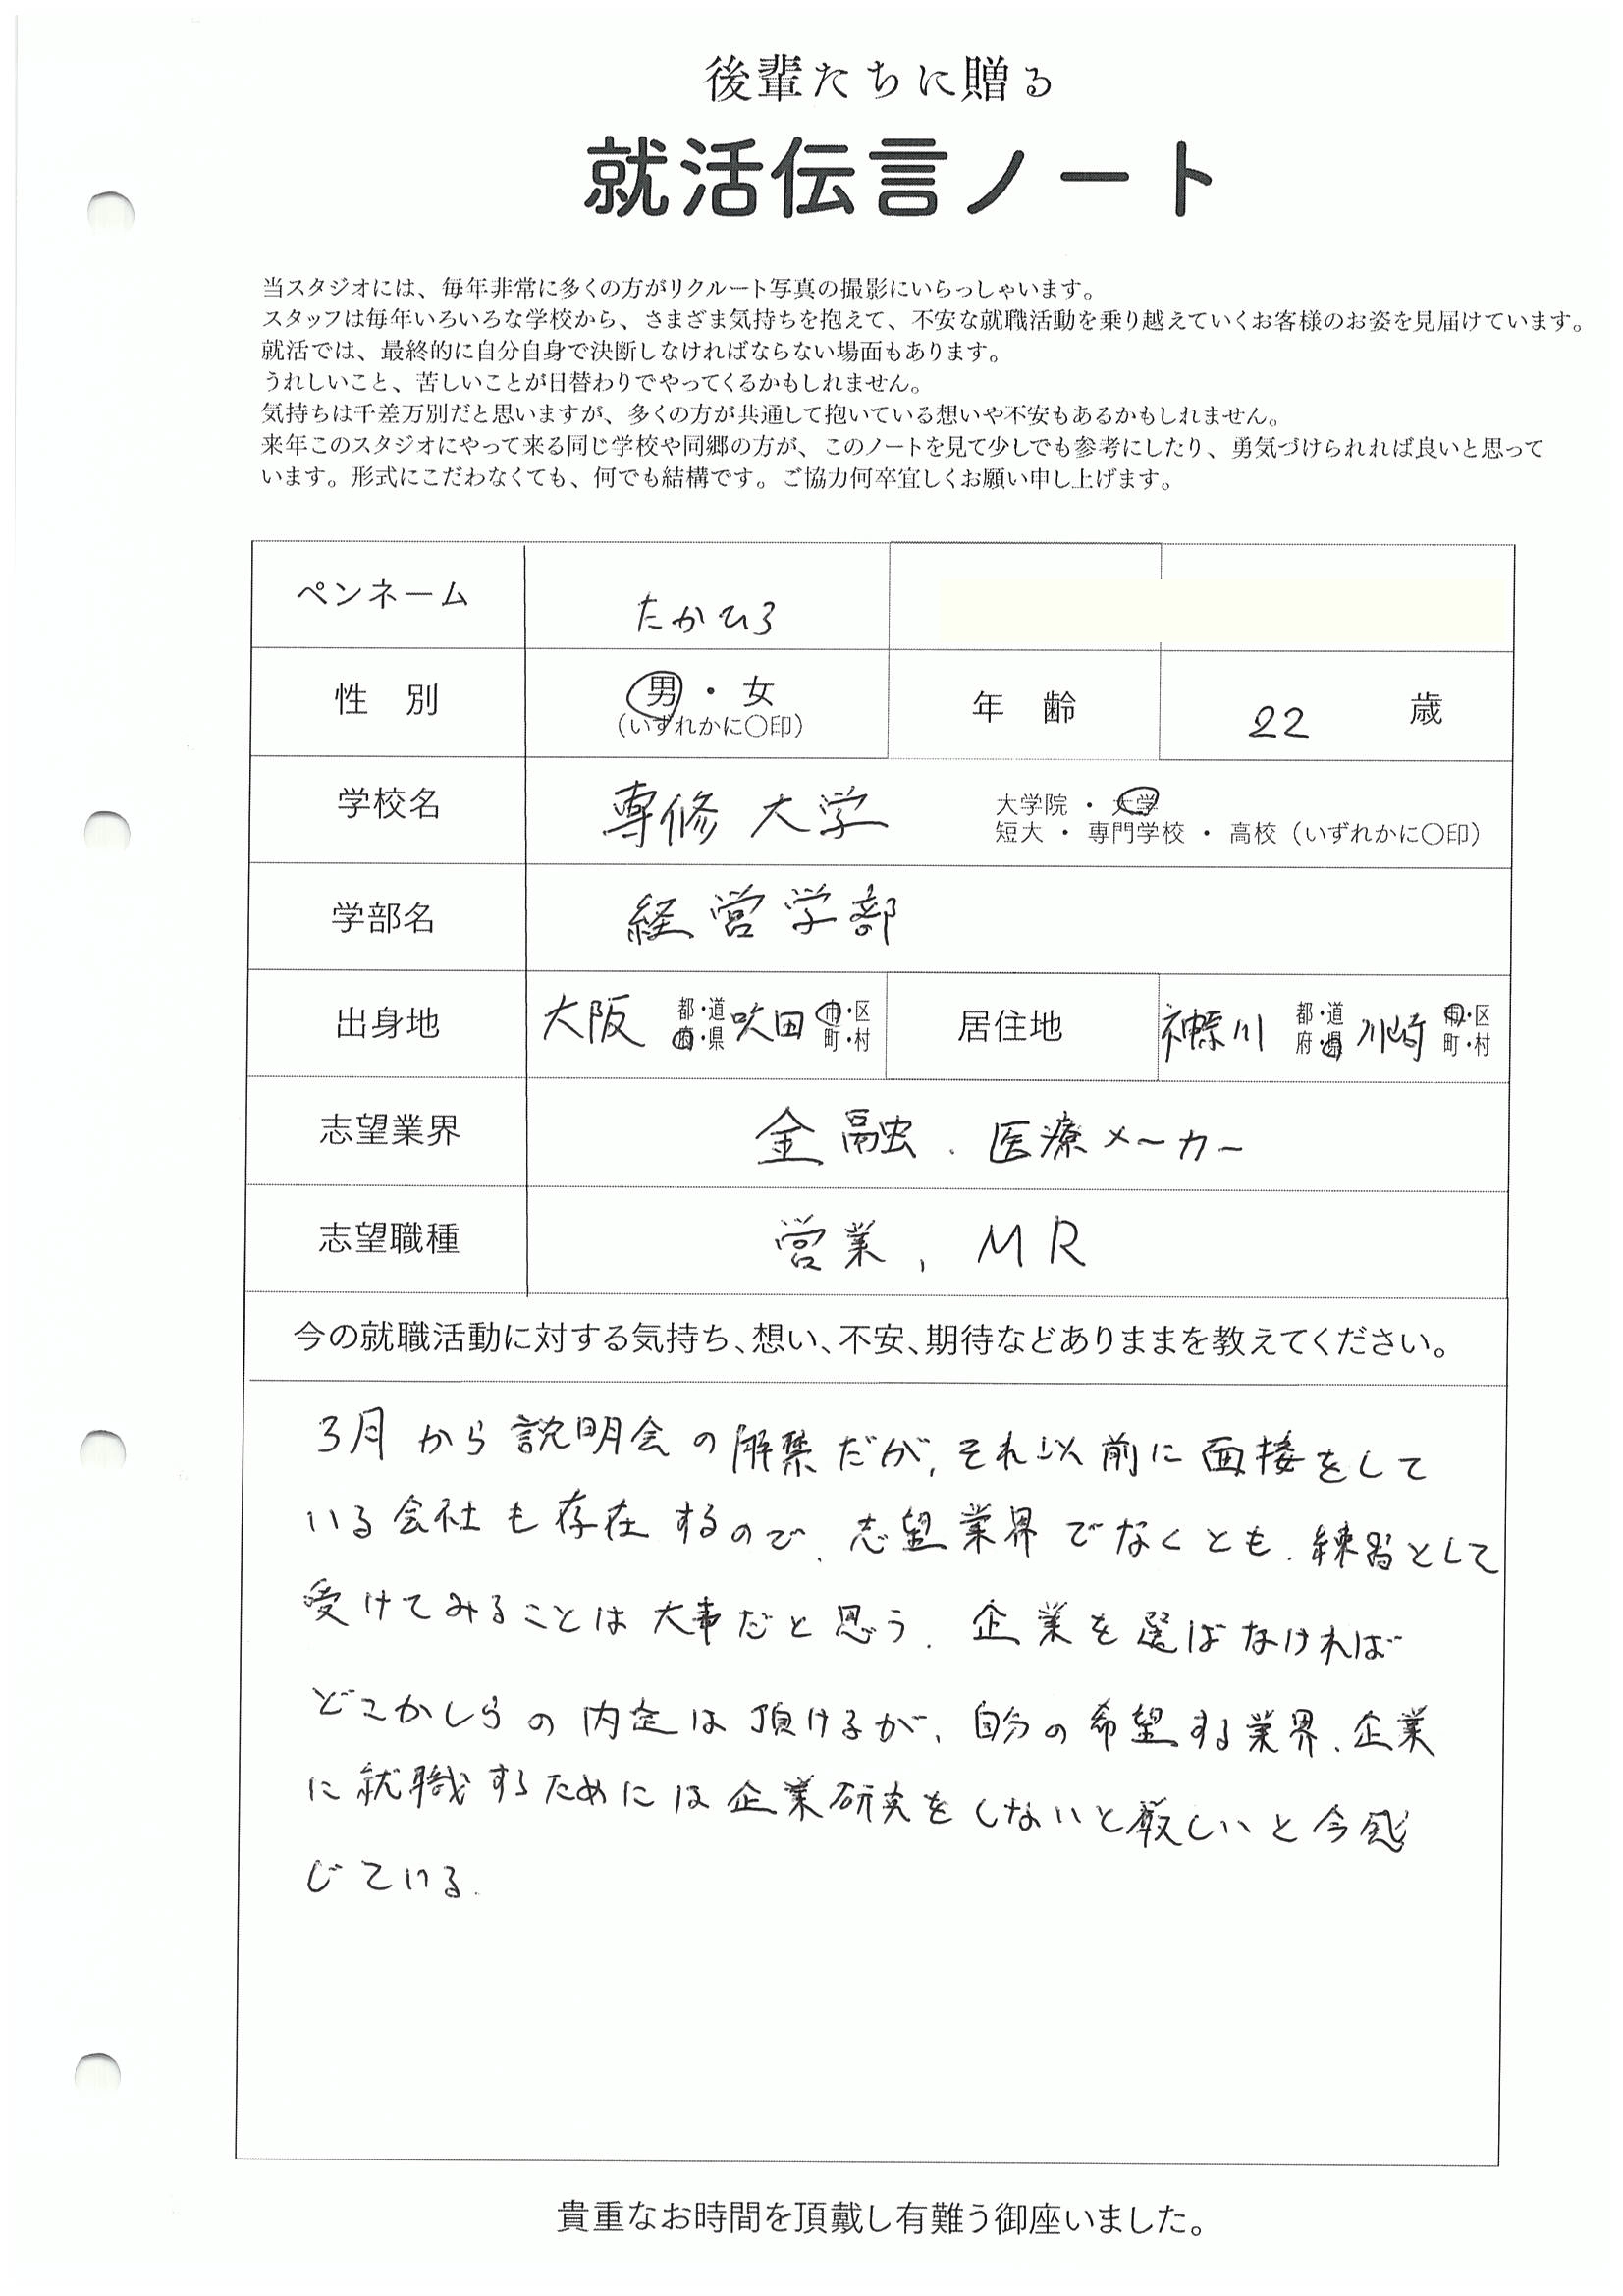 後輩たちに贈る
就活伝言ノート
当スタジオには、毎年非常に多くの方がリクルート写真の撮影にいらっしゃいます。
スタッフは毎年いろいろな学校から、さまざま気持ちを抱えて、不安な就職活動を乗り越えていくお客様のお姿を見届けています。
就活では、最終的に自分自身で決断しなければならない場面もあります。
うれしいこと、苦しいことが日替わりでやってくるかもしれません。
気持ちは千差万別だと思いますが、多くの方が共通して抱いている想いや不安もあるかもしれません。
来年このスタジオにやって来る同じ学校や同郷の方が、このノートを見て少しでも参考にしたり、勇気づけられれば良いと思って
います。形式にこだわなくても、何でも結構です。ご協力何卒宜しくお願い申し上げます。
ペンネーム たかひろ
性 別 男・女 (いずれかに〇印) 年 齢 22 歳
学校名 専修大学 大学院 ・ 大学
短大 ・ 専門学校 ・ 高校 (いずれかに〇印)
学部名 経営学部
出身地 大阪 都・道 府・県 吹田 市・区 町・村 居住地 神奈川 都・道 府・県 川崎 市・区 町・村
志望業界 金融、医療メーカー
志望職種 営業、MR
今の就職活動に対する気持ち、想い、不安、期待などありままを教えてください。
3月から説明会の解禁だが、それ以前に面接をして
いる会社も存在するので、志望業界でなくとも、練習として
受けてみることは大事だと思う。企業を選ばなければ
どこかしらの内定は頂けるが、自分の希望する業界、企業
に就職するためには企業研究をしないと厳しいと今感
じている。
貴重なお時間を頂戴し有難う御座いました。